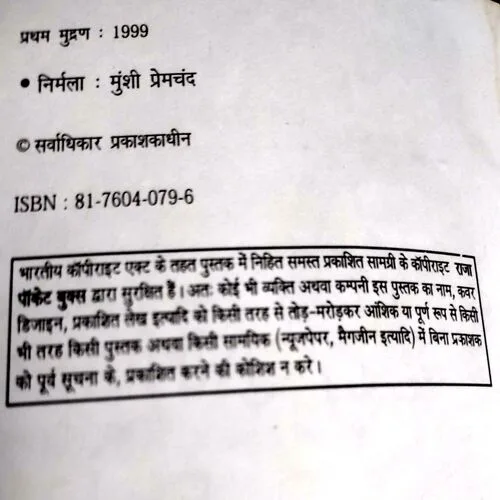 प्रथम मुद्रण : 1999
• निर्मला : मुंशी प्रेमचंद
© सर्वाधिकार प्रकाशकाधीन
ISBN : 81-7604-079-6
भारतीय कॉपीराइट एक्ट के तहत पुस्तक में निहित समस्त प्रकाशित सामग्री के कॉपीराइट राजा
पॉकेट बुक्स द्वारा सुरक्षित हैं। अतः कोई भी व्यक्ति अथवा कम्पनी इस पुस्तक का नाम, कवर
डिजाइन, प्रकाशित लेख इत्यादि को किसी तरह से तोड़-मरोड़कर आंशिक या पूर्ण रूप से किसी
भी तरह किसी पुस्तक अथवा किसी सामयिक (न्यूजपेपर, मैगजीन इत्यादि) में बिना प्रकाशक
को पूर्व सूचना के, प्रकाशित करने की कोशिश न करे।